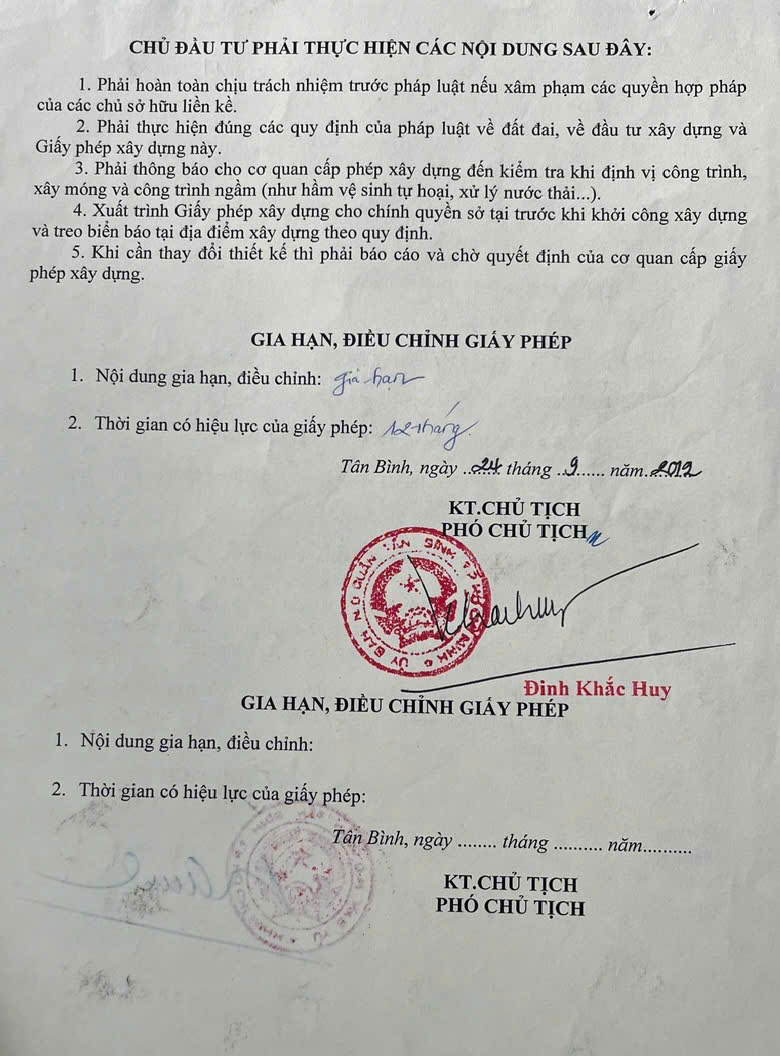 CHỦ ĐẦU TƯ PHẢI THỰC HIỆN CÁC NỘI DUNG SAU ĐÂY:
1. Phải hoàn toàn chịu trách nhiệm trước pháp luật nếu xâm phạm các quyền hợp pháp
của các chủ sở hữu liền kề.
2. Phải thực hiện đúng các quy định của pháp luật về đất đai, về đầu tư xây dựng và
Giấy phép xây dựng này.
3. Phải thông báo cho cơ quan cấp phép xây dựng đến kiểm tra khi định vị công trình,
xây móng và công trình ngầm (như hầm vệ sinh tự hoại, xử lý nước thải...).
4. Xuất trình Giấy phép xây dựng cho chính quyền sở tại trước khi khởi công xây dựng
và treo biển báo tại địa điểm xây dựng theo quy định.
5. Khi cần thay đổi thiết kế thì phải báo cáo và chờ quyết định của cơ quan cấp giấy
phép xây dựng.
GIA HẠN, ĐIỀU CHỈNH GIẤY PHÉP
1. Nội dung gia hạn, điều chỉnh: gia hạn
2. Thời gian có hiệu lực của giấy phép: 12 tháng.
Tân Bình, ngày ..24.. tháng ..9...... năm..2012
KT.CHỦ TỊCH
PHÓ CHỦ TỊCH
Đinh Khắc Huy
GIA HẠN, ĐIỀU CHỈNH GIẤY PHÉP
1. Nội dung gia hạn, điều chỉnh:
2. Thời gian có hiệu lực của giấy phép:
Tân Bình, ngày ........ tháng .......... năm..........
KT.CHỦ TỊCH
PHÓ CHỦ TỊCH